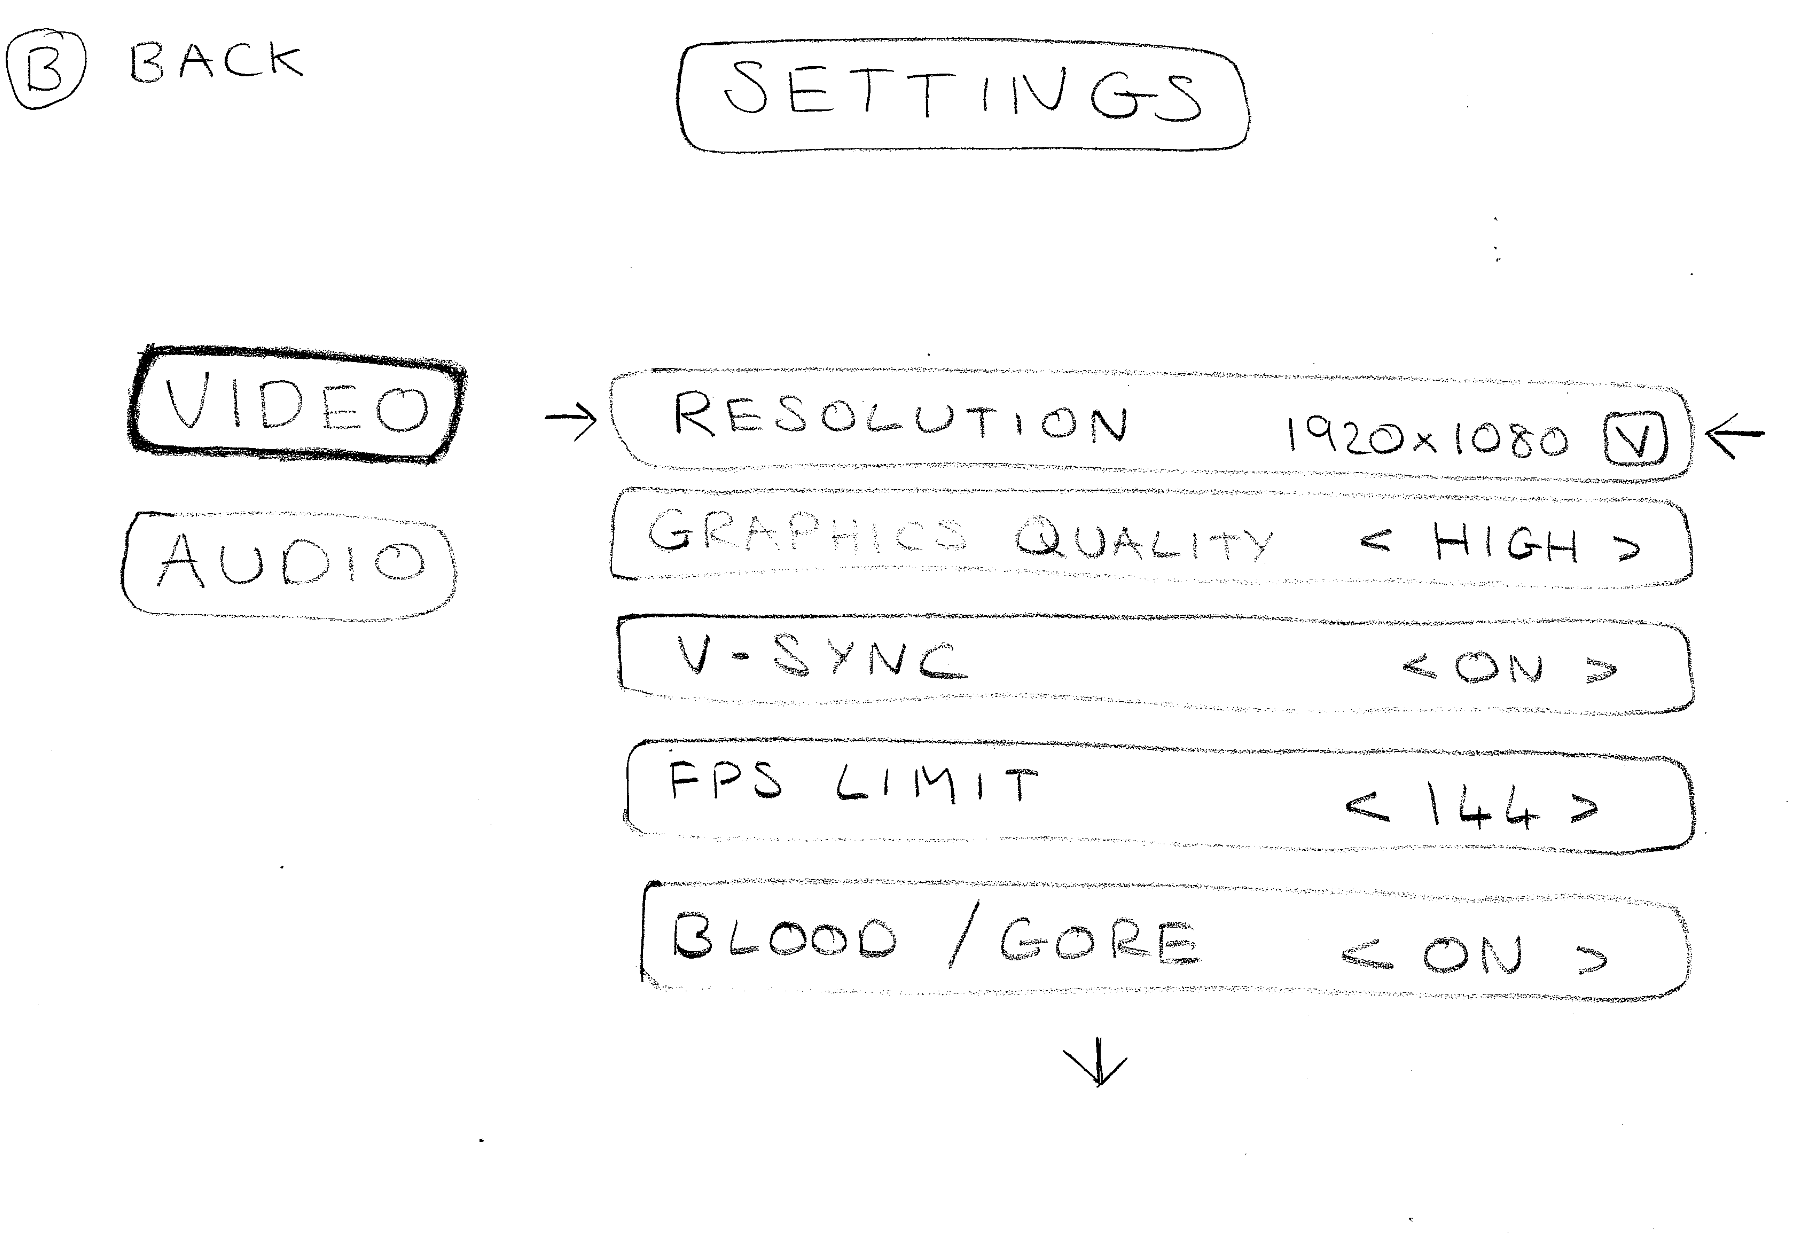 B BACK
SETTINGS
VIDEO
AUDIO
RESOLUTION 1920x1080 V
GRAPHICS QUALITY < HIGH >
V-SYNC < ON >
FPS LIMIT < 144 >
BLOOD / GORE < ON >